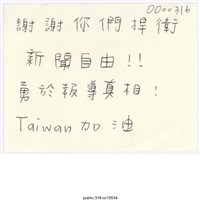 0000316
謝謝你們捍衛
新聞自由!!
勇於報導真相!
Taiwan加油
public.318.io/10534